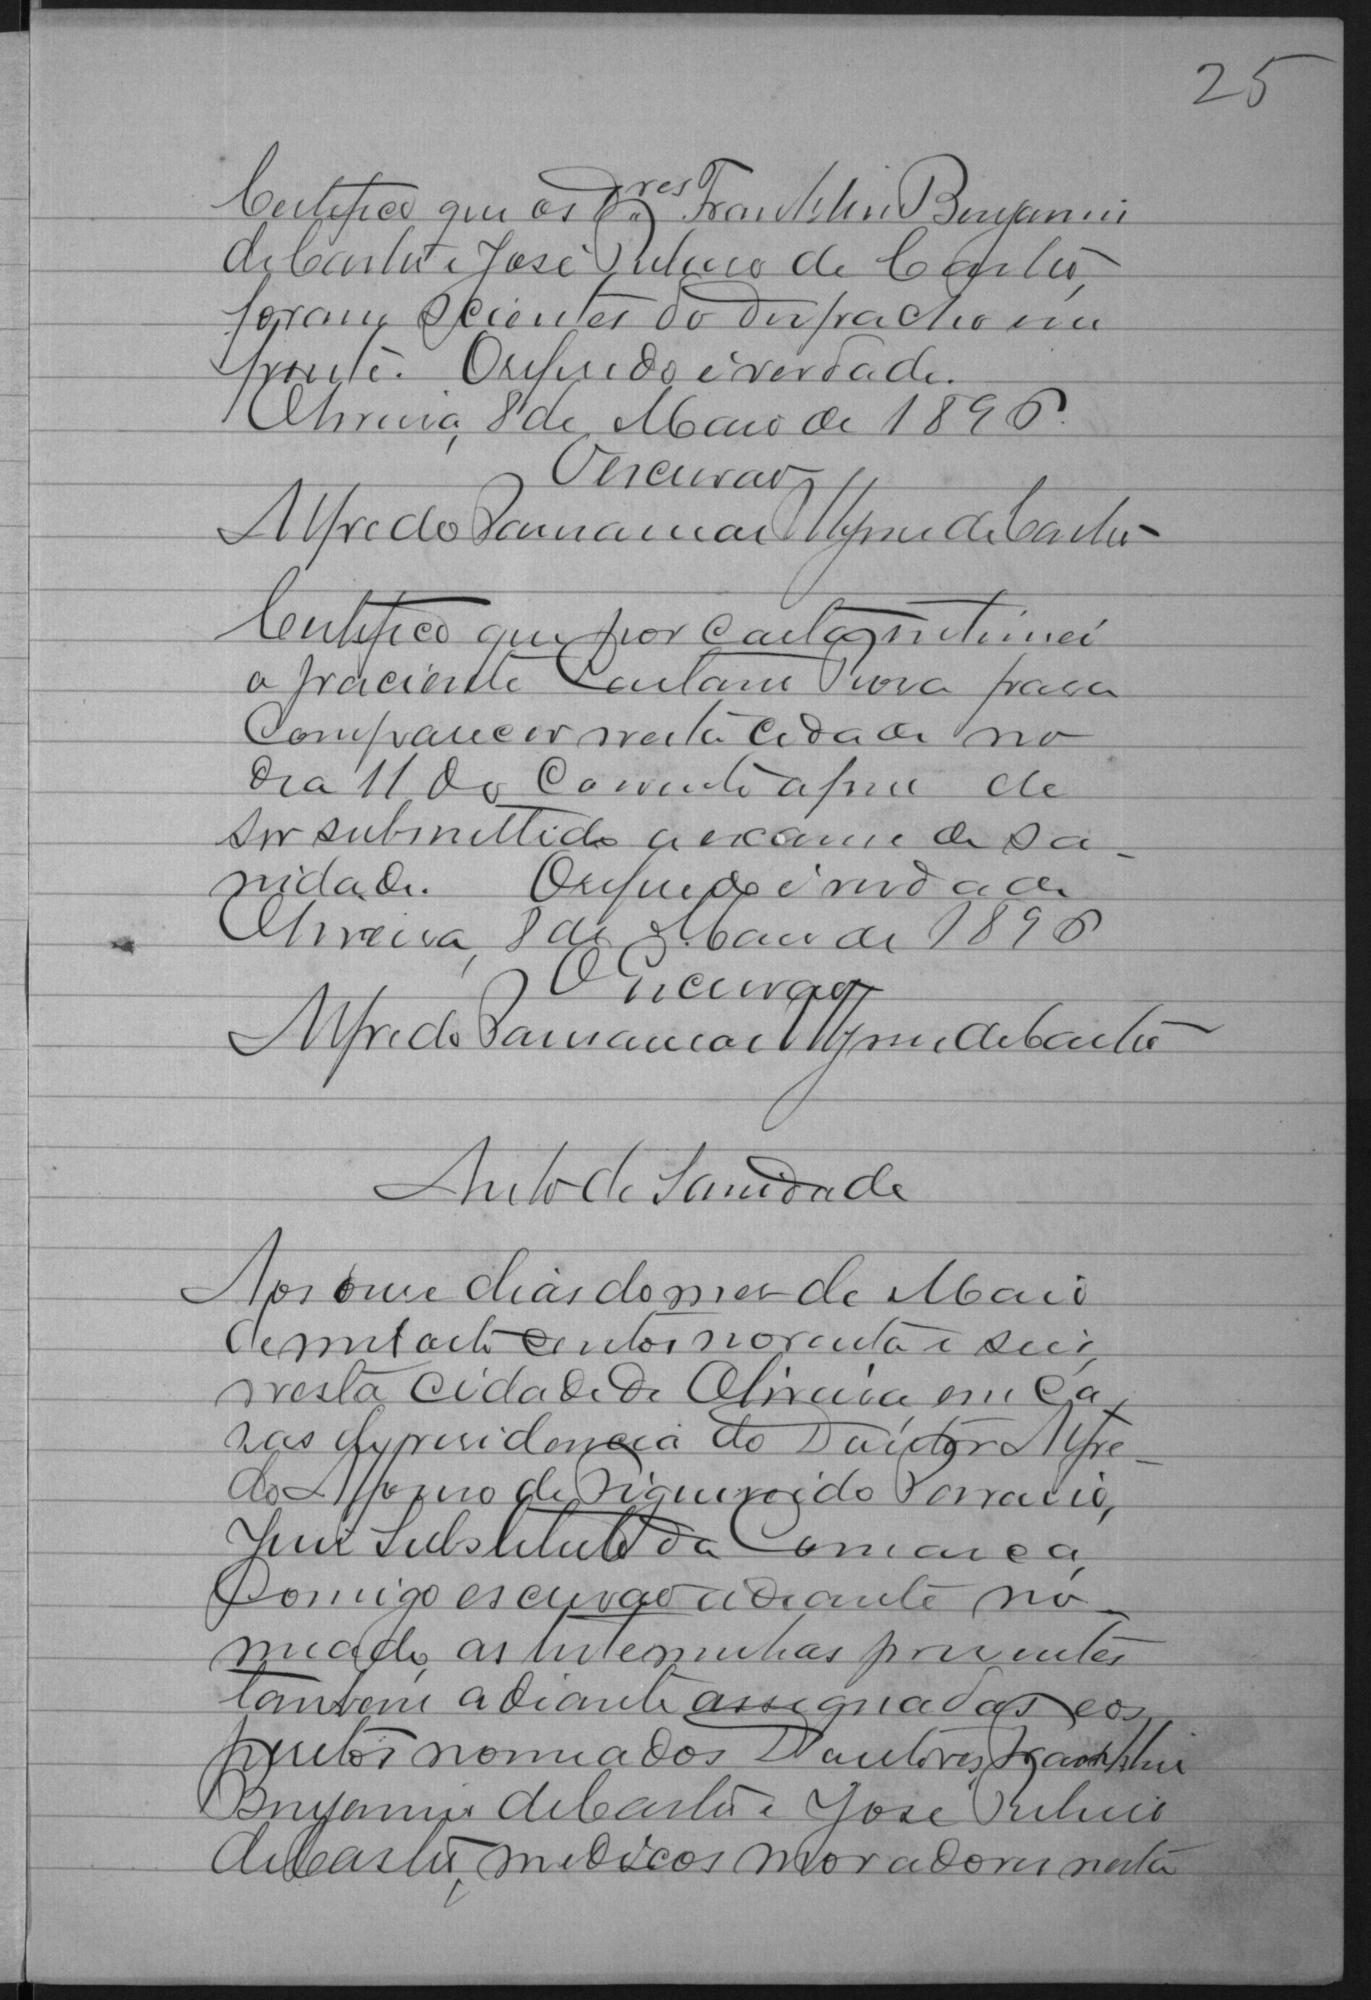 25
Certifico que os Dres Franklin Benjamin
de Castro e José Ribeiro de Castro,
foram scientes do despacho em
frente. O referido é verdade.
Oliveira, 8 de Maio de 1896.
O escrivão
Alfredo de Castro
Certifico que por carta intimei
o paciente Caetano para
comparecer nesta cidade no
dia 11 do corrente afim de
ser submettido a exame de sa-
nidade. O referido é verdade
Oliveira, 8 de Maio de 1896
O Escrivão
Alfredo de Castro
Auto de Sanidade
Aos onze dias do mez de Maio
de mil oito centos noventa e seis,
nesta cidade de Oliveira, em ca-
zas de residencia do Doutor Alfre-
do Affonso de Figueiredo
Juiz Substituto da Comarca,
Comigo escrivão adiante no-
meado, as testemunhas presentes
tambem adiante assignadas, e os
peritos nomeados Doutores Franklin
Benjamin de Castro e José Ribeiro
de Castro, medicos moradores nesta